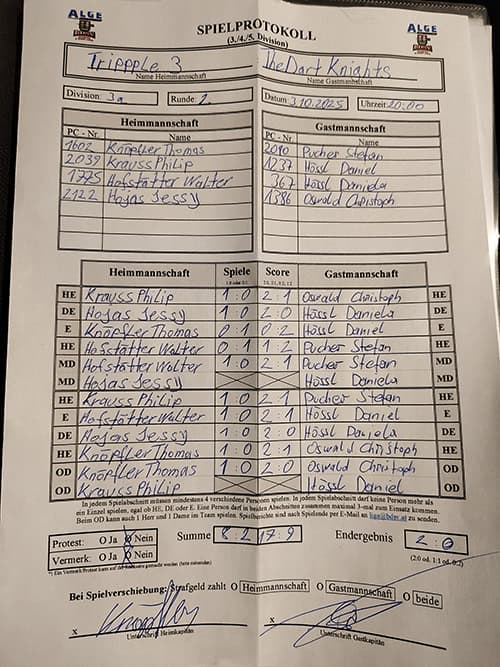 ALGE ALGE
SPIELPROTOKOLL
(3./4./5. Division)
Trippple 3 The Dart Knights
Name Heimmannschaft Name Gastmannschaft
Division: 3a Runde: 2. Datum: 3.10.2025 Uhrzeit: 20:00
Heimmannschaft Gastmannschaft
PC - Nr. Name PC - Nr. Name
1602 Knöpfler Thomas 2090 Pucher Stefan
2039 Krauss Philip 1237 Hössl Daniel
1775 Hofstätter Walter 367 Hössl Daniela
2122 Hojas Jessy 1386 Oswald Christoph
Heimmannschaft Spiele Score Gastmannschaft
HE Krauss Philip 1:0 2:1 Oswald Christoph HE
DE Hojas Jessy 1:0 2:0 Hössl Daniela DE
E Knöpfler Thomas 0:1 0:2 Hössl Daniel E
HE Hofstätter Walter 0:1 1:2 Pucher Stefan HE
MD Hofstätter Walter 1:0 2:1 Pucher Stefan MD
MD Hojas Jessy Hössl Daniela MD
HE Krauss Philip 1:0 2:1 Pucher Stefan HE
E Hofstätter Walter 1:0 2:1 Hössl Daniel E
DE Hojas Jessy 1:0 2:0 Hössl Daniela DE
HE Knöpfler Thomas 1:0 2:1 Oswald Christoph HE
OD Knöpfler Thomas 1:0 2:0 Oswald Christoph OD
OD Krauss Philip Hössl Daniel OD
In jedem Spielabschnitt müssen mindestens 4 verschiedene Personen spielen. In jedem Spielabschnitt darf keine Person mehr als
ein Einzel spielen, egal ob HE, DE oder E. Eine Person darf in beiden Abschnitten zusammen maximal 3-mal zum Einsatz kommen.
Beim OD kann auch 1 Herr und 1 Dame im Team spielen. Spielberichte sind nach Spielende per E-Mail an zu senden.
Protest: O Ja O Nein Summe 8:2 17:9 Endergebnis 2:0
Vermerk: O Ja O Nein (2:0 od. 1:1 od. 0:2)
Bei Spielverschiebung: Strafgeld zahlt O Heimmannschaft O Gastmannschaft O beide
x x
Unterschrift Heimkapitän Unterschrift Gastkapitän